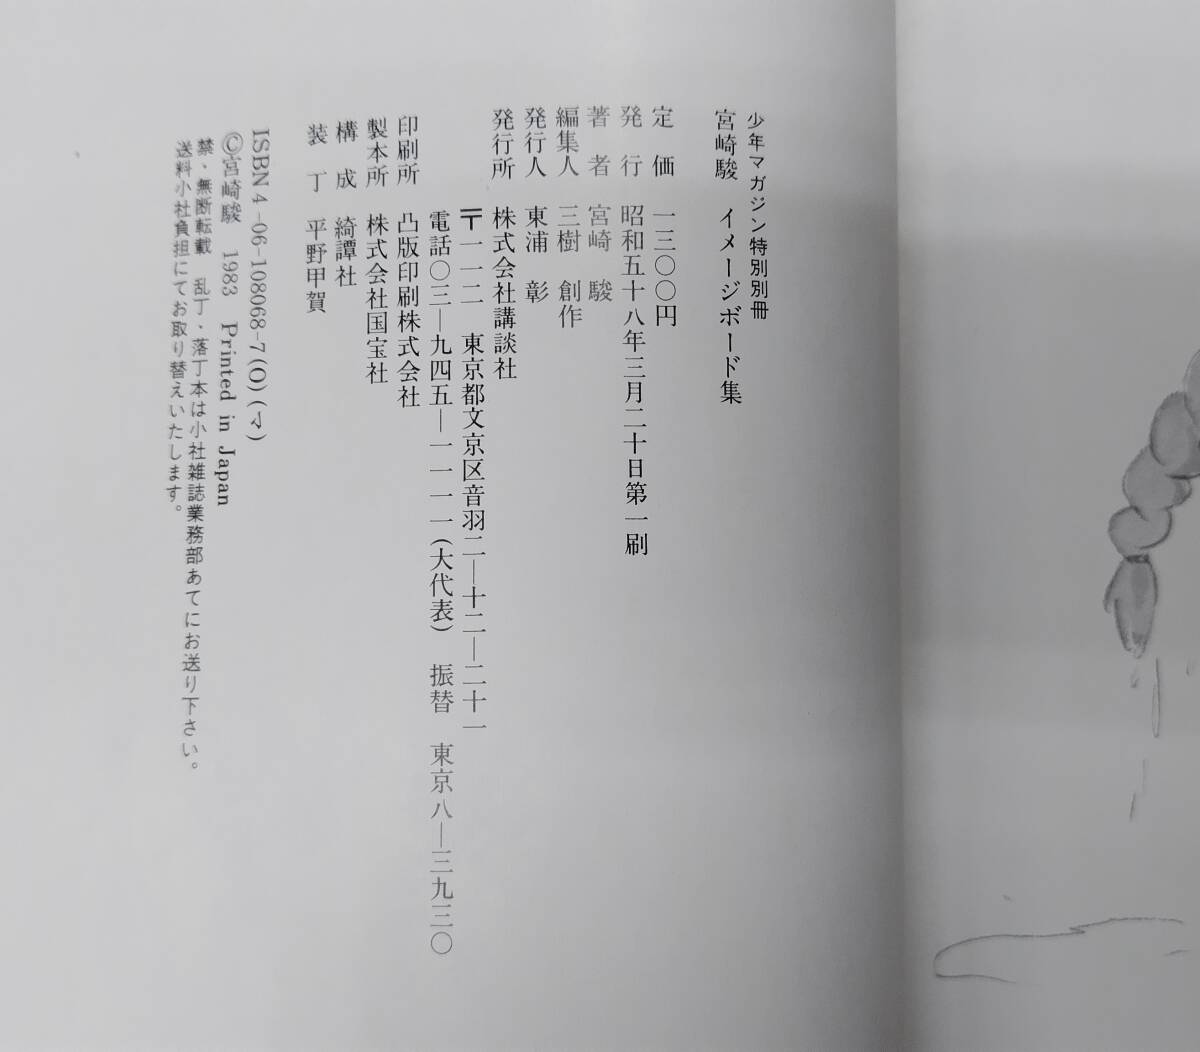 少年マガジン特別別冊
宮崎駿 イメージボード集
定価 一三〇〇円
発行 昭和五十八年三月二十日第一刷
著者 宮崎 駿
編集人 三樹 創作
発行人 東浦 彰
発行所 株式会社講談社
〒一一二 東京都文京区音羽二―十二―二十一
電話〇三―九四五―一一一一(大代表) 振替 東京八―三九三〇
印刷所 凸版印刷株式会社
製本所 株式会社国宝社
構成 綺譚社
装丁 平野甲賀
ISBN4-06-108068-7(0)(マ)
©宮崎駿 1983 Printed in Japan
禁・無断転載 乱丁・落丁本は小社雑誌業務部あてにお送り下さい。
送料小社負担にてお取り替えいたします。